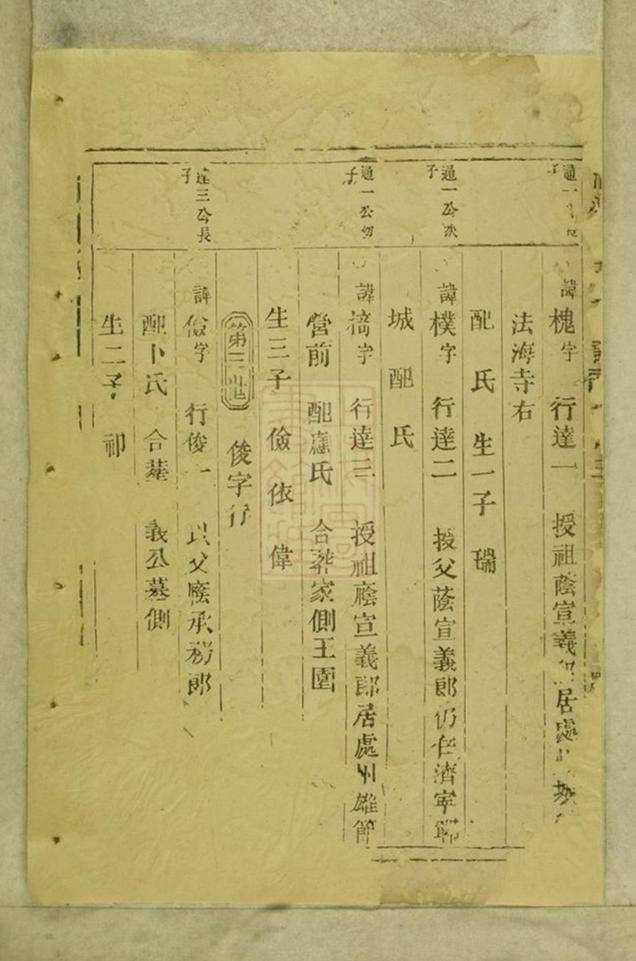 通一公長子
諱槐字 行達一 授祖蔭宣義郎居處州
法海寺右
配 氏 生一子 瑞
通一公次子
諱樸字 行達二 授父蔭宣義郎仍任濟寧
城 配 氏
通一公幼子
諱 字 行達三 授祖蔭宣義郎居處州雄節
營前 配應氏 合葬家側王園
生三子 儉 依 偉
第三世 俊字行
達三公長子
諱儉字 行俊一 以父蔭承務郎
配卜氏 合葬 義公墓側
生二子 祁